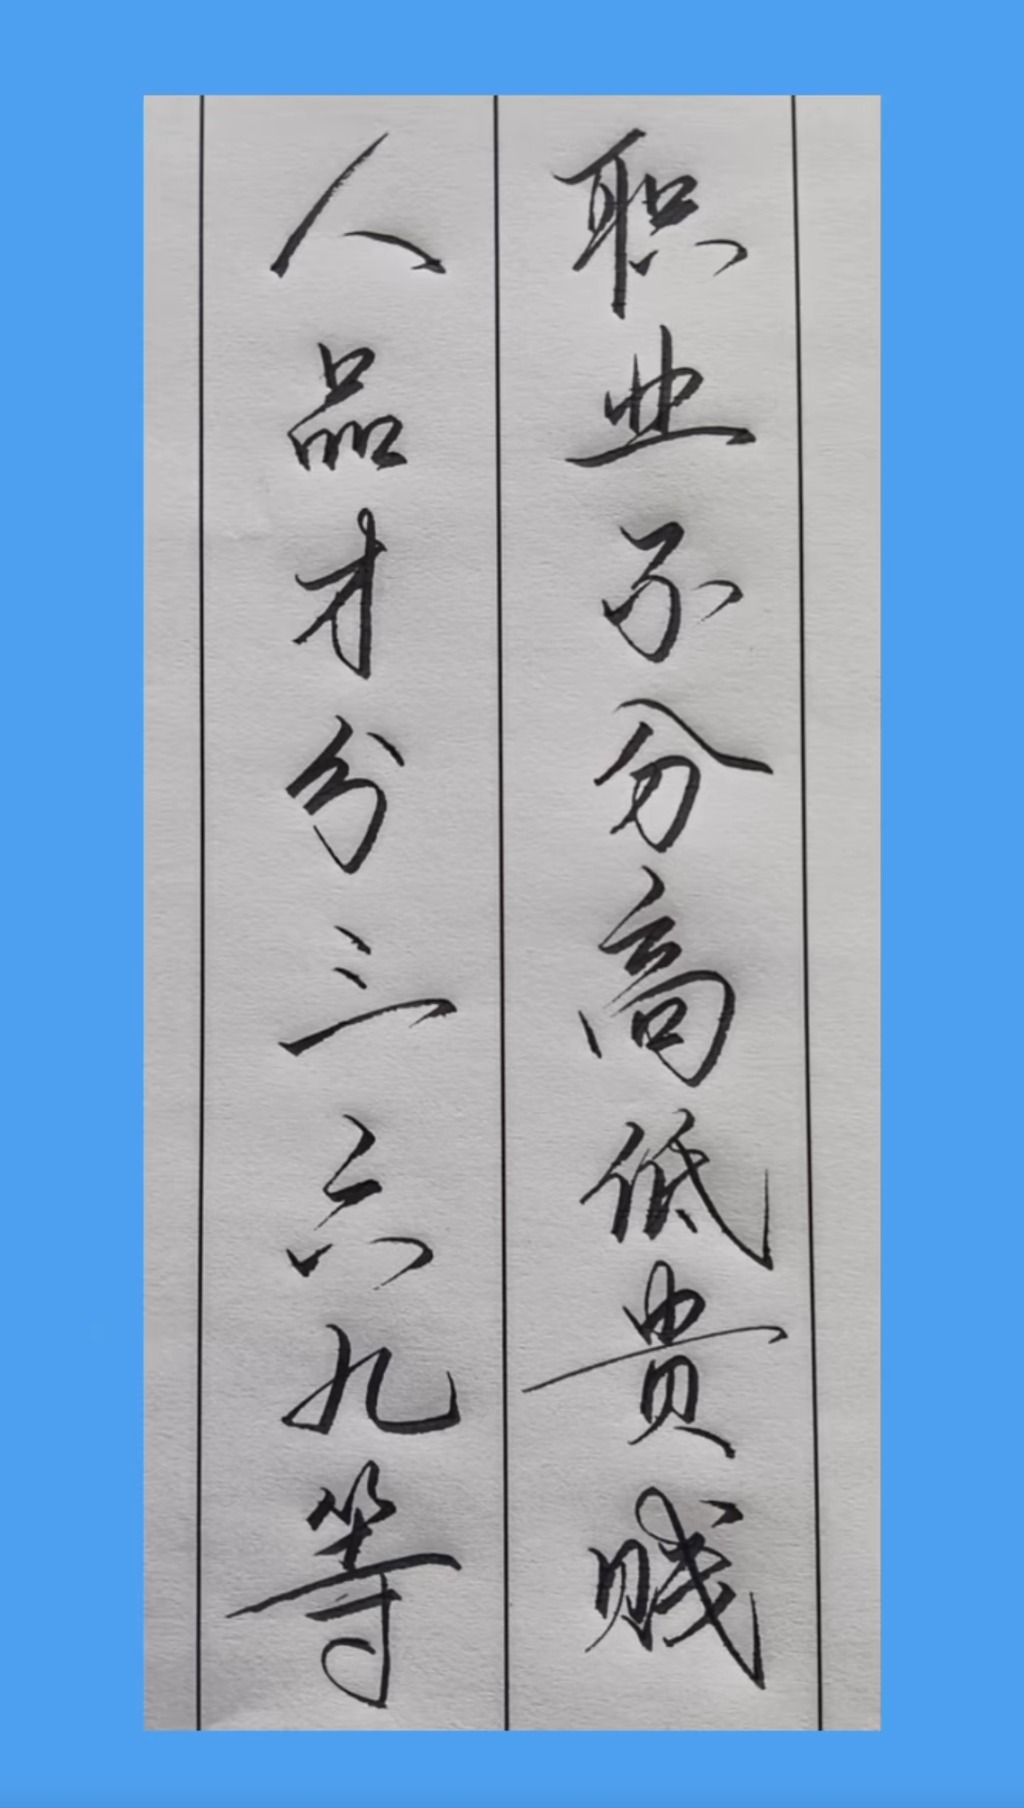 职业不分高低贵贱
人品才分三六九等